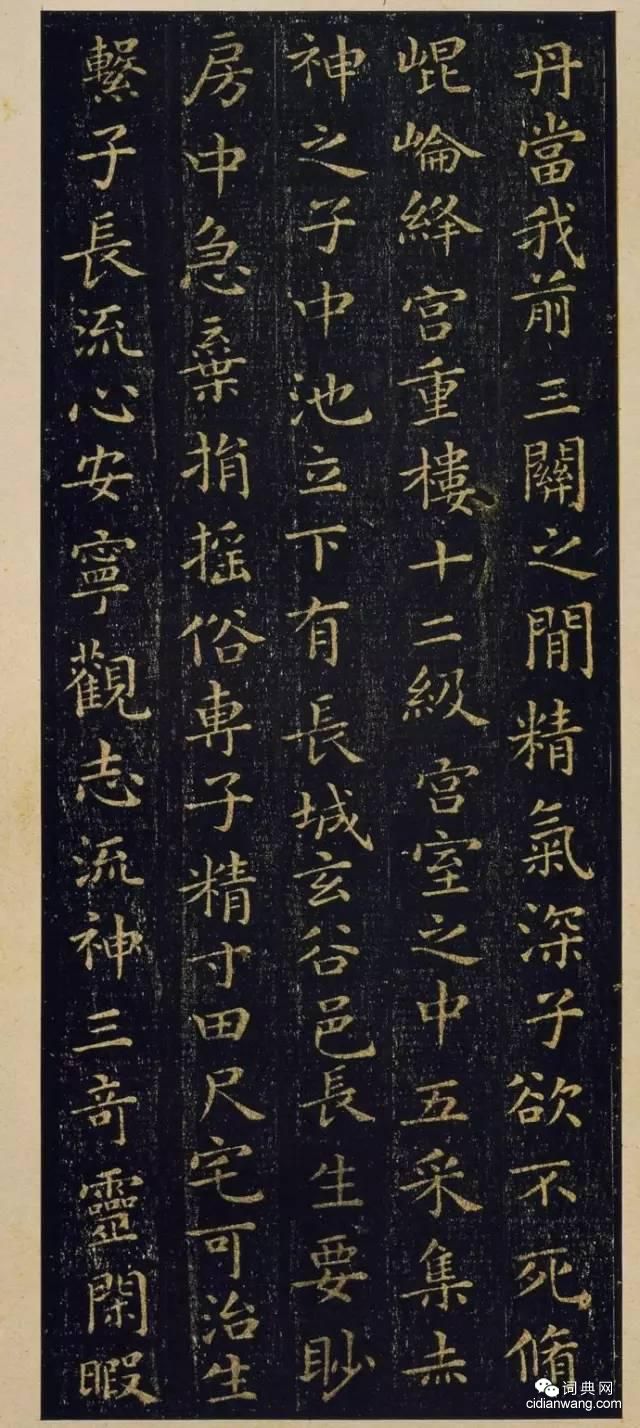 丹當我前三關之間精氣深子欲不死脩
崐崘絳宮重樓十二級宮室之中五采集赤
神之子中池立下有長城玄谷邑長生要眇
房中急棄捐搖俗專子精寸田尺宅可治生
繫子長流心安寧觀志流神三奇靈閑暇
词典网
cidianwang.com